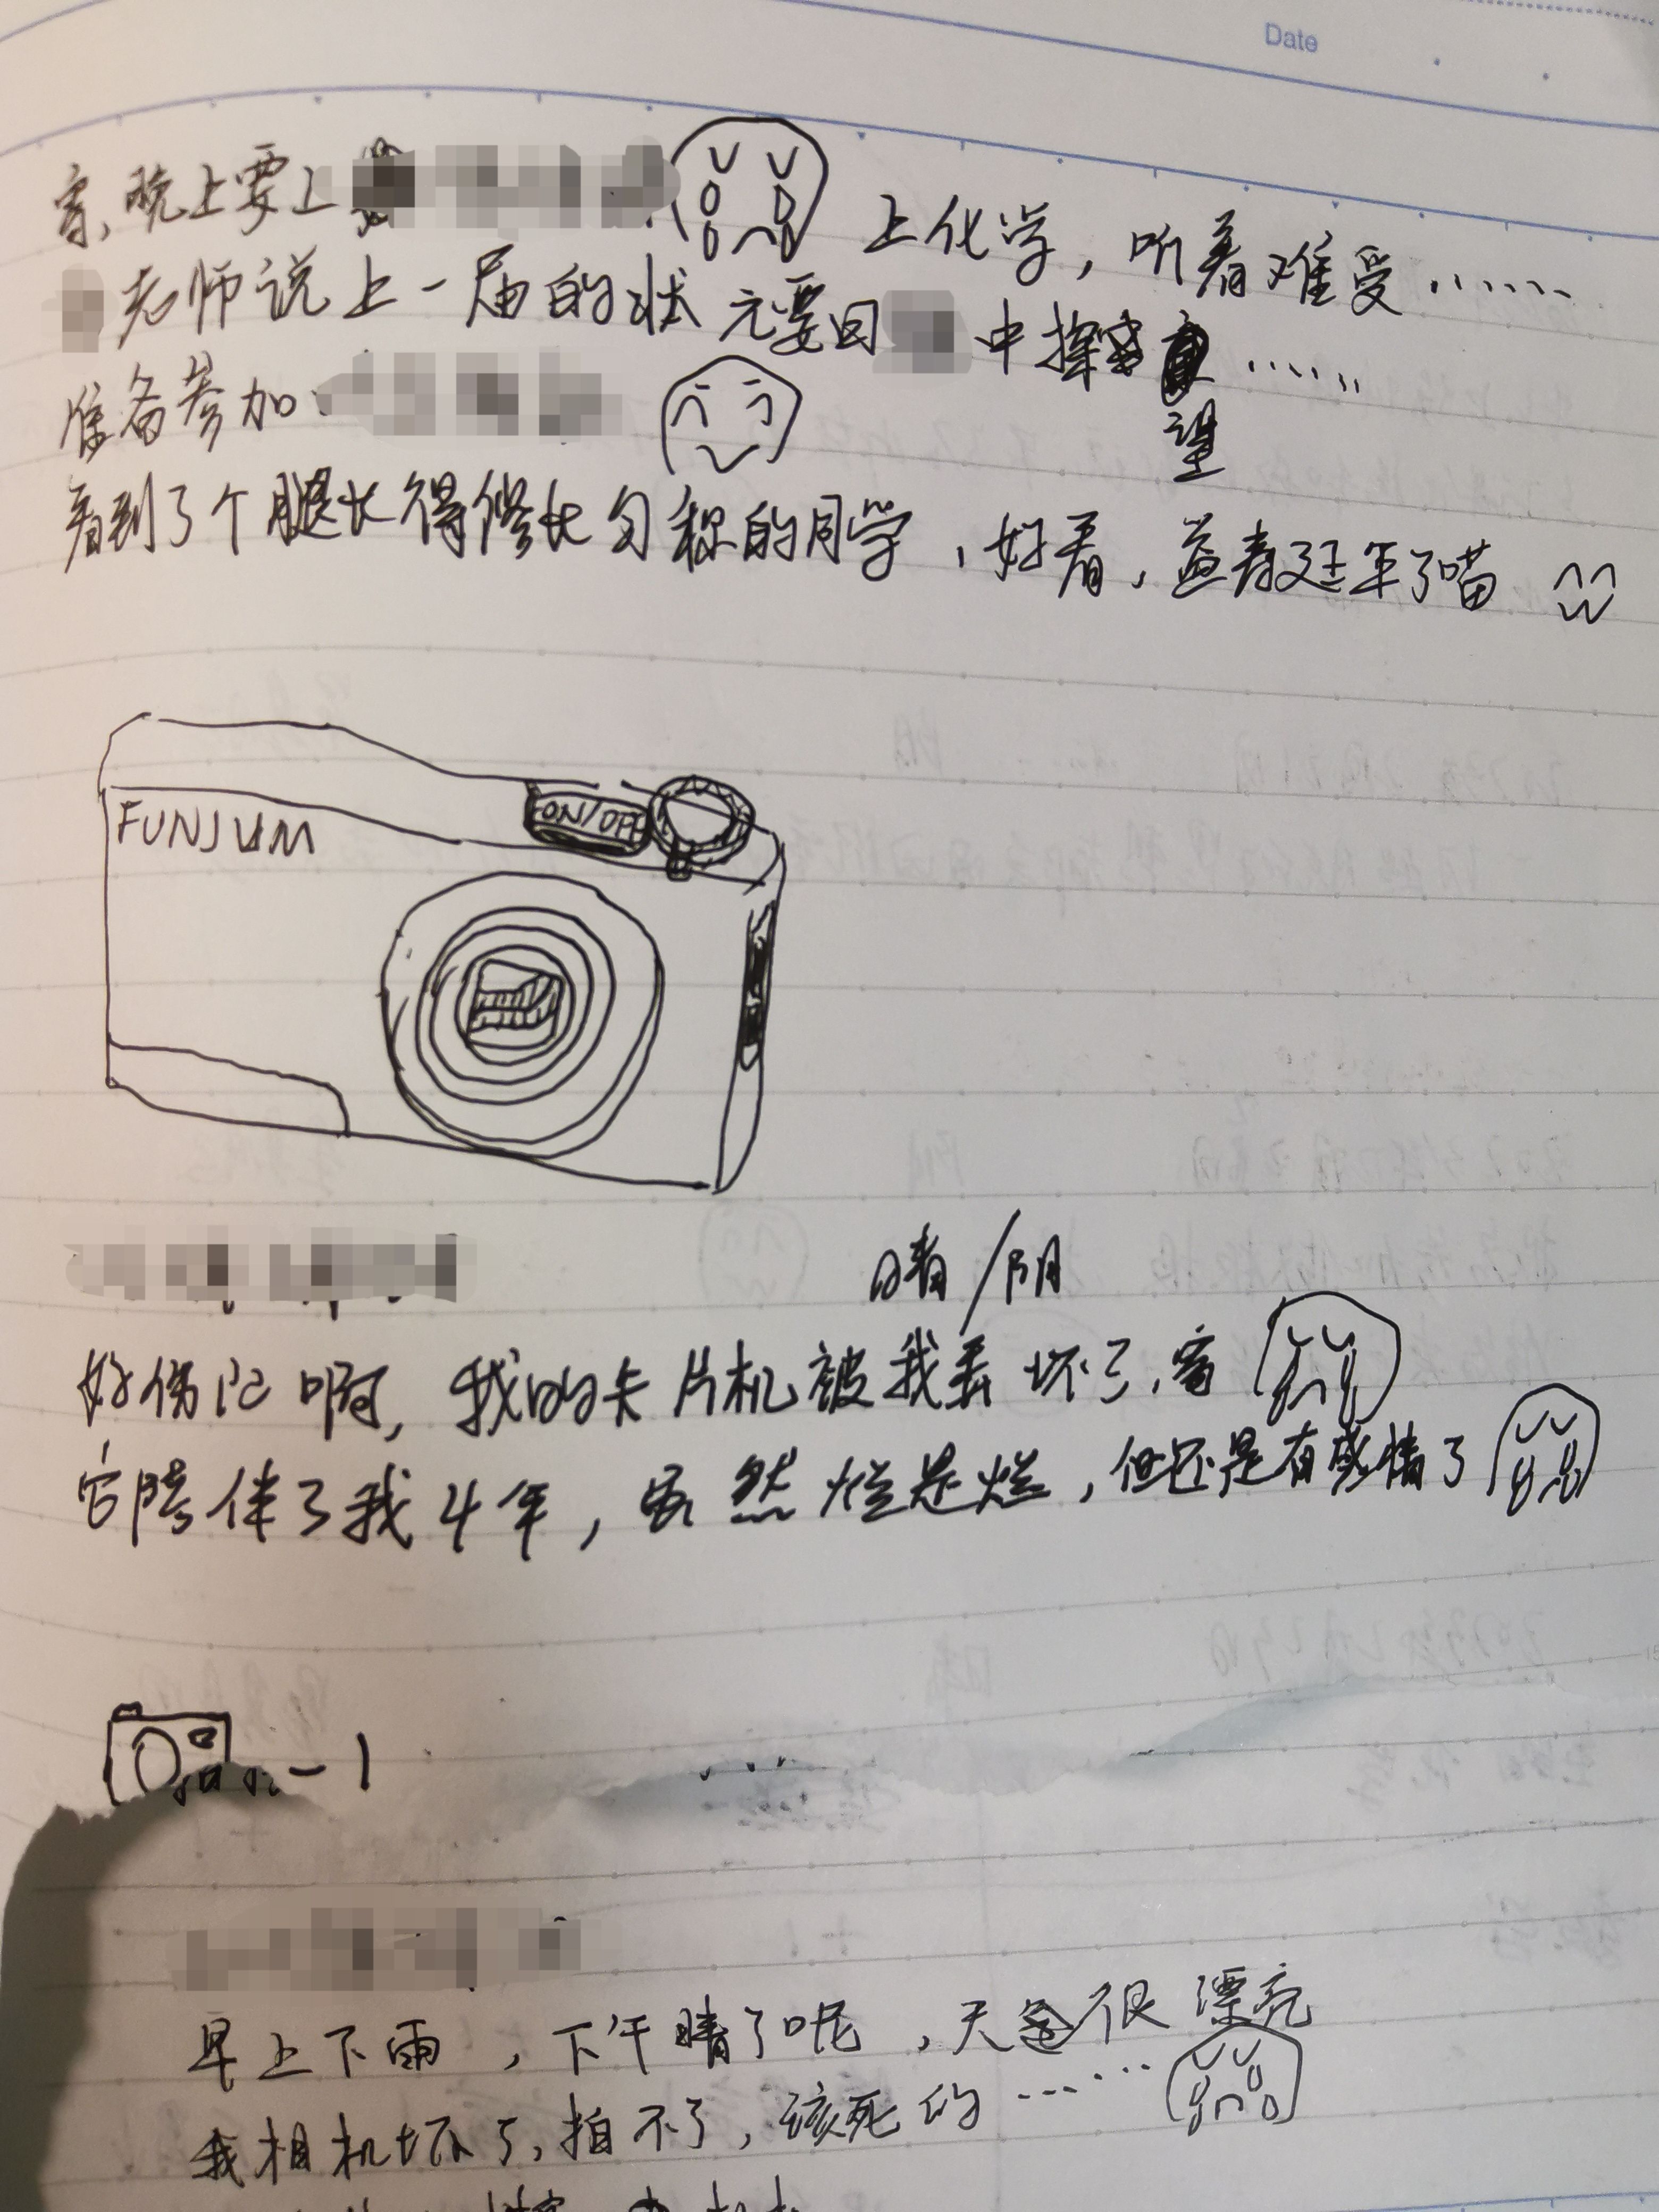 Date
害，晚上要上
上化学，听着难受……
老师说上一届的状元要回
中探望……
准备参加
看到了个腿长得修长匀称的同学，好看，益寿延年了喵
FUNJUM
ON/OFF
晴/阴
好伤心啊，我的卡片机被我弄坏了，害
它陪伴了我4年，虽然烂是烂，但还是有感情了
-1
早上下雨，下午晴了呢，天色很漂亮
我相机坏了，拍不了，该死的……